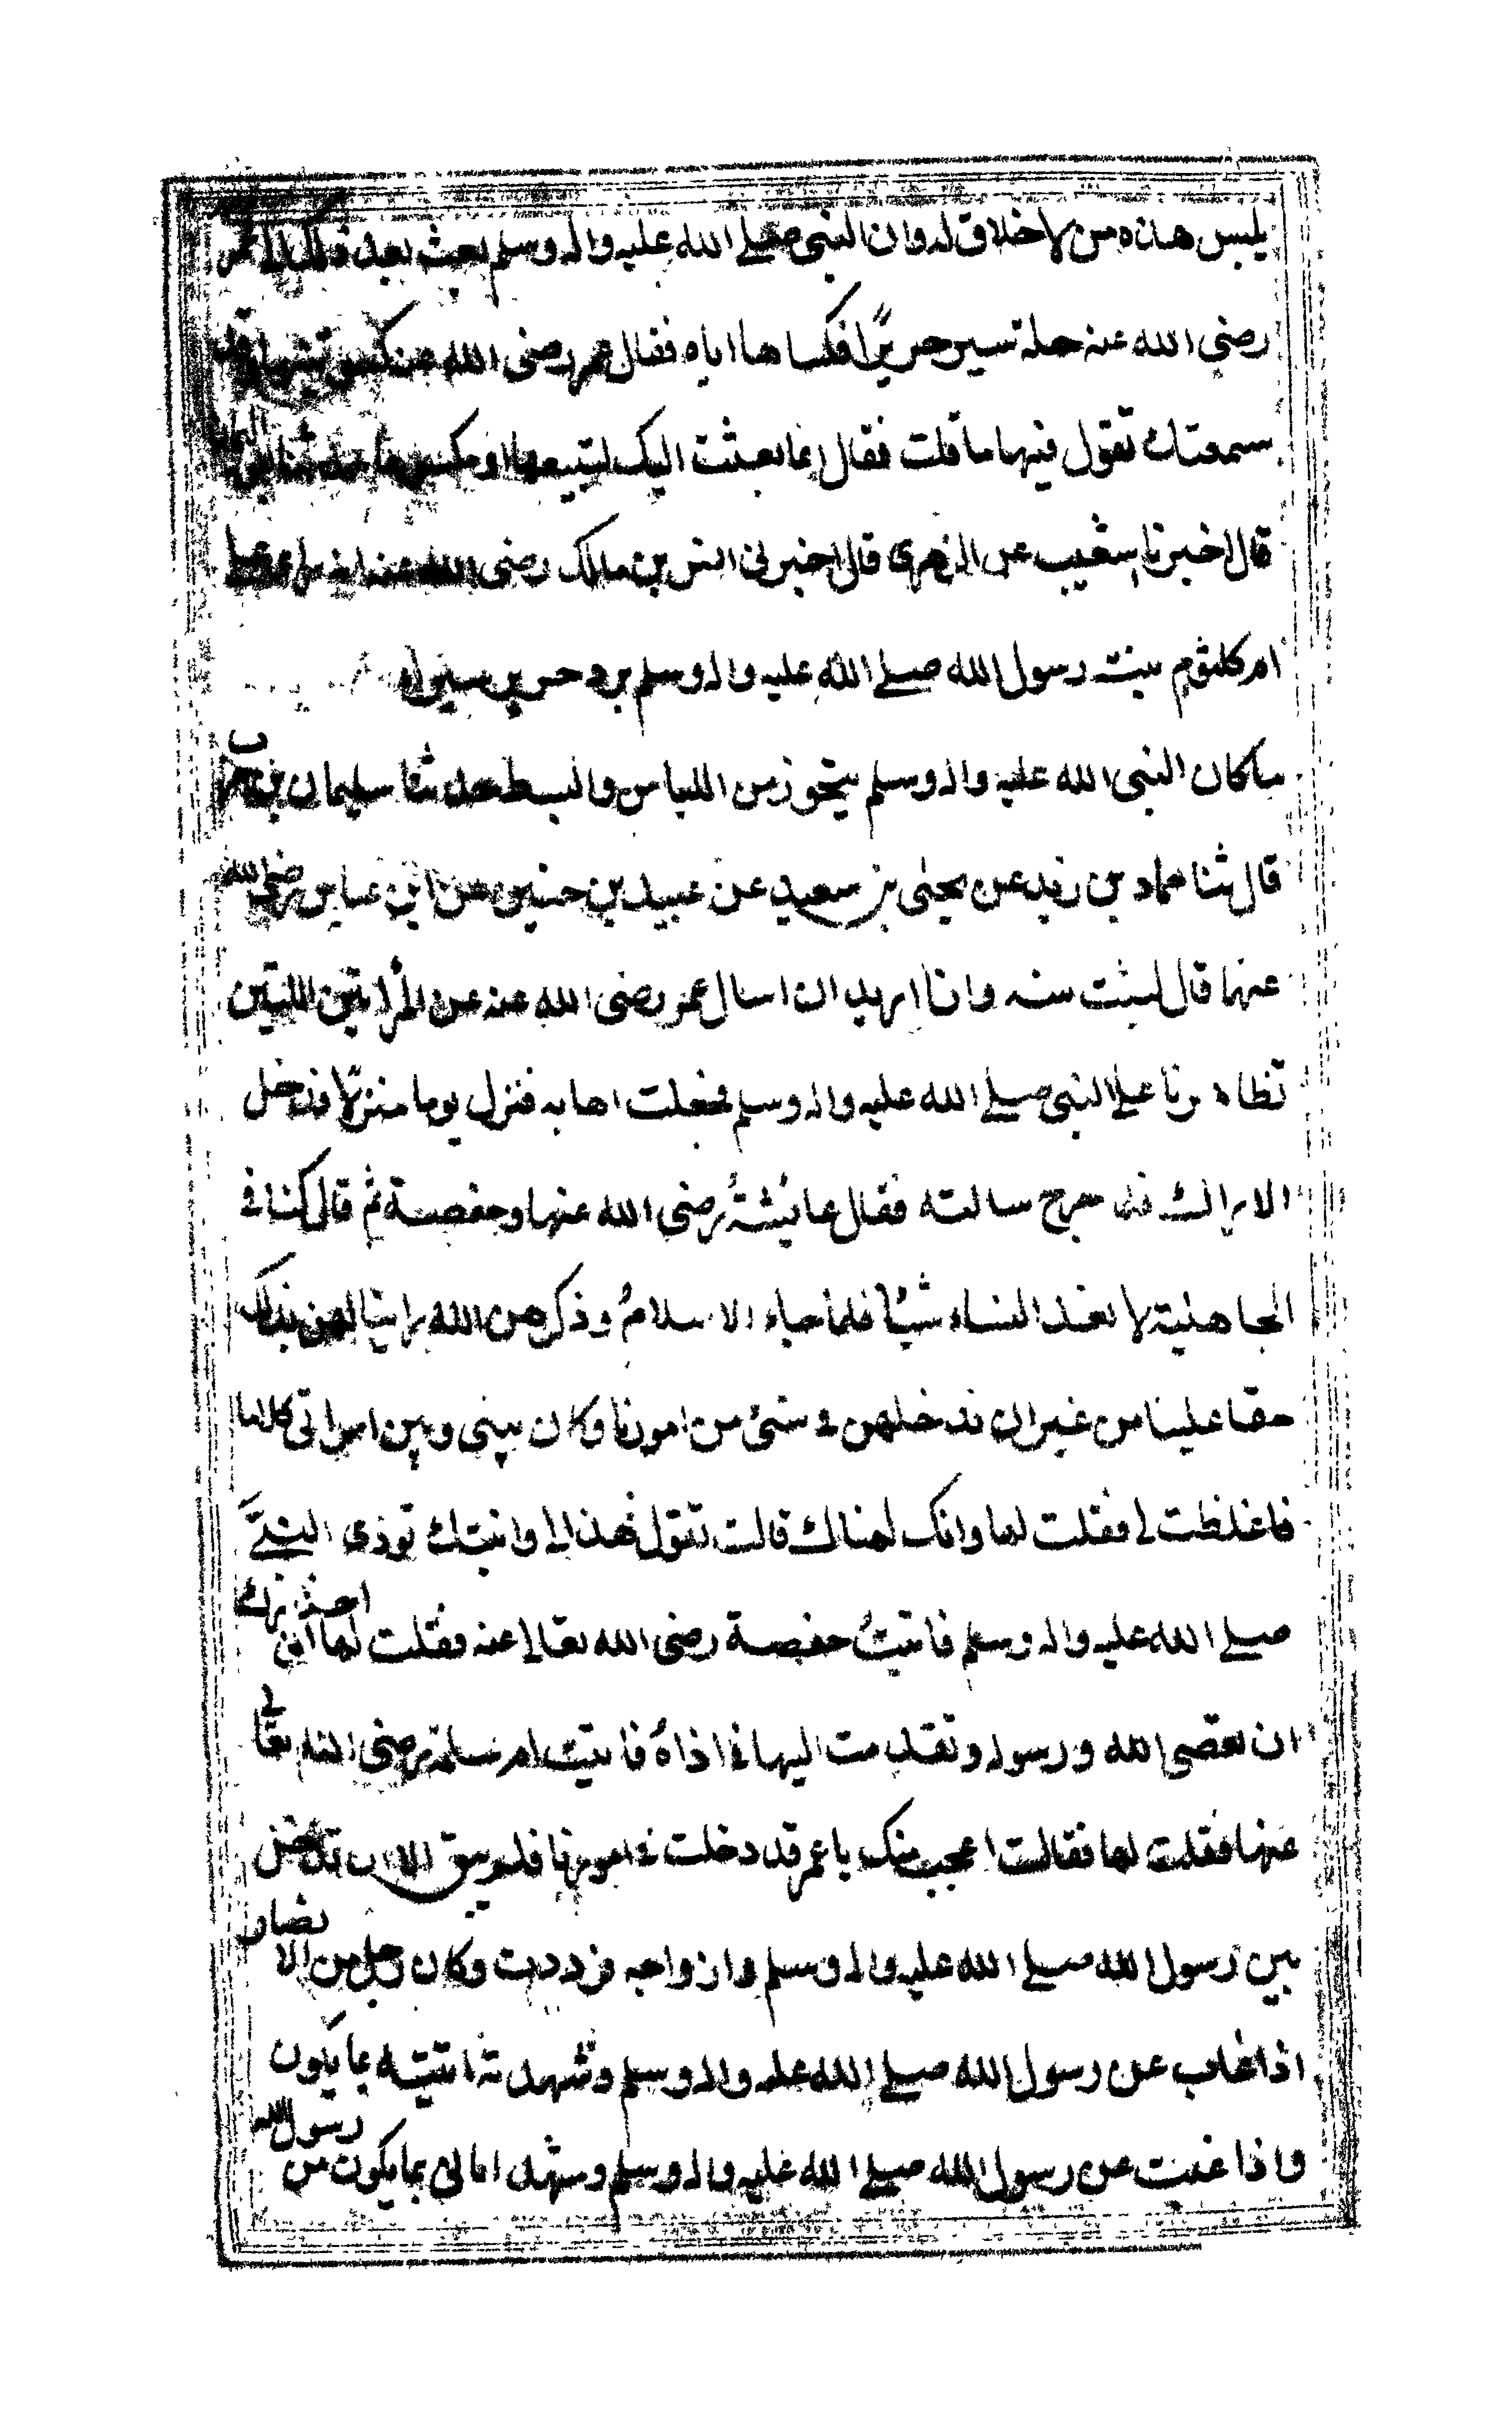 يلبس هذه من لا خلاق له وان النبي صلے الله عليه واله وسلم بعث بعد ذلك الى عمر
رضي الله عنه حلة سير حريرًا فكساها اياه فقال عمر رضى الله عنه كسوتنيها وقد
سمعتك تقول فيها ما قلت فقال انما بعثت اليك لتبيعها او تكسوها
قال اخبرنا شعيب عن الزهرى قال اخبرنى انس بن مالك رضى الله عنه انه راى على
ام كلثوم بنت رسول الله صلے الله عليه واله وسلم برد حرير سيراء
ما كان النبى الله عليه واله وسلم يتجوز من اللباس والبسط حدثنا سليمان بن حرب
قال ثنا حماد بن زيد عن يحيٰى بن سعيد عن عبيد بن حنين عن ابن عباس رضى الله
عنهما قال لبثت سنه وانا اريد ان اسال عمر رضى الله عنه عن المرأتين اللتين
تظاهرتا علے النبى صلے الله عليه واله وسلم فجعلت اهابه فنزل يوما منزلًا فدخل
الاراك فلما خرج سالته فقال عايشةُ رضى الله عنها وحفصة ثم قال كنا فى
الجاهلية لا نعد النساء شيًا فلما جاء الاسلامُ وذكرهن الله راينا لهن بذلك
حقا علينا من غير ان ندخلهن فى شئ من امورنا وكان بينى وبين امراتى كلاما
فاغلظت لى فقلت لها وانك لهناك قالت تقول هذا لى وابنتك توذى النبيَّ
صلے الله عليه واله وسلم فاتيتُ حفصة رضى الله تعالى عنه فقلت لها انى احذرك
ان تعصى الله ورسوله وتقدمت اليها فى اذاهُ فاتيت ام سلمة رضى الله تعالى
عنها فقلت لها فقالت اعجب منك يا عمر قد دخلت فى امورنا فلم يبق الا ان تدخل
بين رسول الله صلے الله عليه واله وسلم وازواجه فرددت وكان رجل من الانصار
اذا غاب عن رسول الله صلے الله عليه واله وسلم وشهدته اتيته بما يكون
واذا غبت عن رسول الله صلے الله عليه واله وسلم وشهد اتانى بما يكون من رسول الله